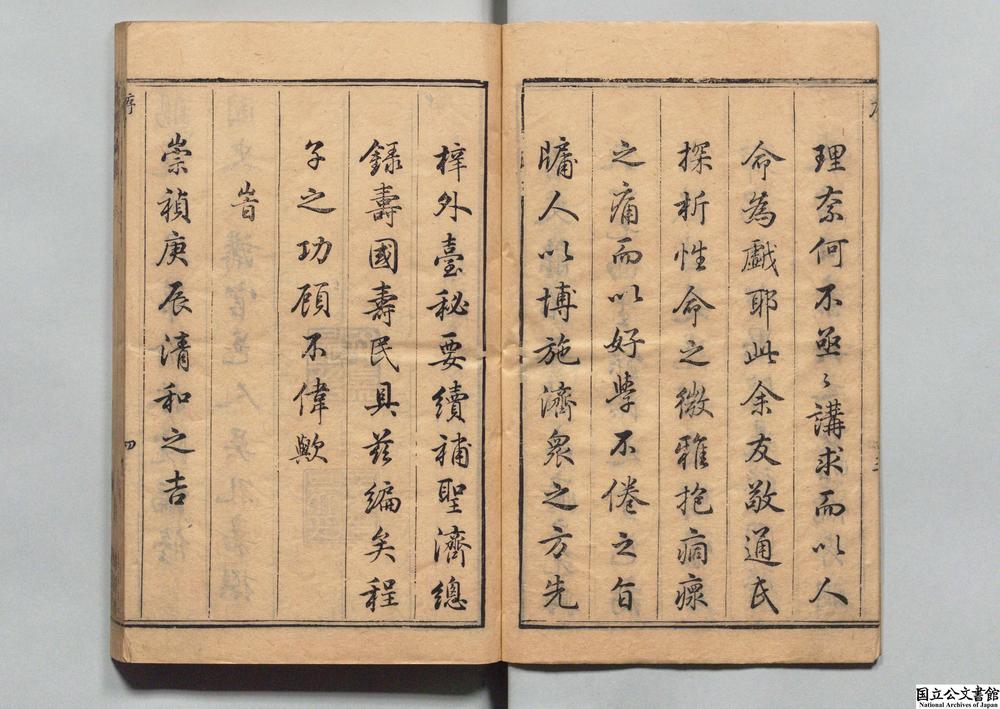 理柰何不亟〻講求而以人
命為戲耶此余友敬通氏
探析性命之微雅抱痌瘝
之痛而以好學不倦之旨
牖人以博施濟衆之方先
梓外臺秘要續補聖濟總
錄壽國壽民具茲編矣程
子之功顧不偉歟
旹
崇禎庚辰清和之吉
序 四
国立公文書館
National Archives of Japan